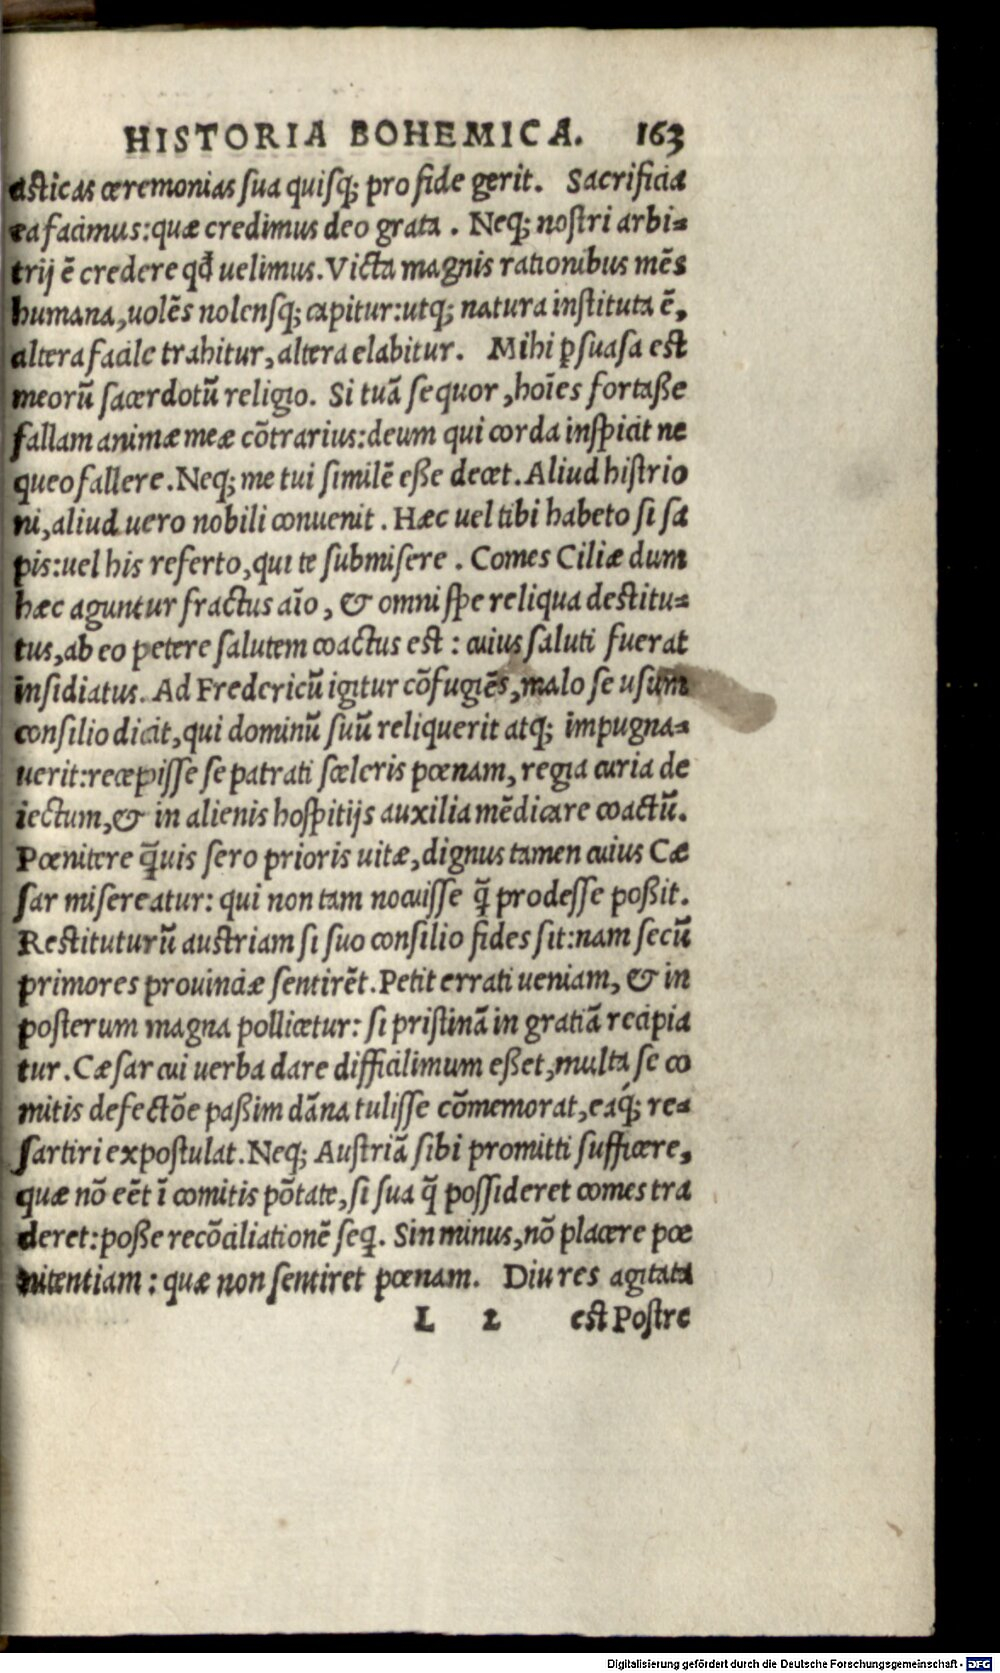 HISTORIA BOHEMICA. 163
asticas cæremonias sua quisq; pro fide gerit. Sacrificia
ea facimus:quæ credimus deo grata. Neq; nostri arbi=
trij ē credere qđ uelimus. Victa magnis rationibus mēs
humana,uolēs nolensq; capitur:utq; natura instituta ē,
altera facile trahitur,altera elabitur. Mihi p̱suasa est
meorū sacerdotū religio. Si tuā sequor,hoīes fortasse
fallam animæ meæ cōtrarius:deum qui corda inspicit ne
queo fallere. Neq; me tui similē esse decet. Aliud histrio
ni,aliud uero nobili conuenit. Hæc uel tibi habeto si sa
pis:uel his referto,qui te submisere. Comes Ciliæ dum
hæc aguntur fractus aīo, & omni spe reliqua destitu=
tus,ab eo petere salutem coactus est: cuius saluti fuerat
insidiatus. Ad Fredericū igitur cōfugiēs,malo se usum
consilio dicit,qui dominū suū reliquerit atq; impugna=
uerit:recepisse se patrati sceleris pœnam, regia curia de
iectum,& in alienis hospitijs auxilia mēdicare coactū.
Pœnitere q̃uis sero prioris uitæ,dignus tamen cuius Cæ
sar misereatur: qui non tam nocuisse q̃ prodesse possit.
Restituturū austriam si suo consilio fides sit:nam secū
primores prouinciæ sentirēt. Petit errati ueniam, & in
posterum magna pollicetur: si pristinā in gratiā recipia
tur. Cæsar cui uerba dare difficilimum esset,multa se co
mitis defectōe passim dāna tulisse cōmemorat,eaq́; re=
sartiri expostulat. Neq; Austriā sibi promitti sufficere,
quæ nō eēt ī comitis pōtate,si sua q̃ possideret comes tra
deret:posse recōciliationē seq. Sin minus,nō placere pœ
nitentiam: quæ non sentiret pœnam. Diu res agitata
L 2 est Postre
Digitalisierung gefördert durch die Deutsche Forschungsgemeinschaft - DFG